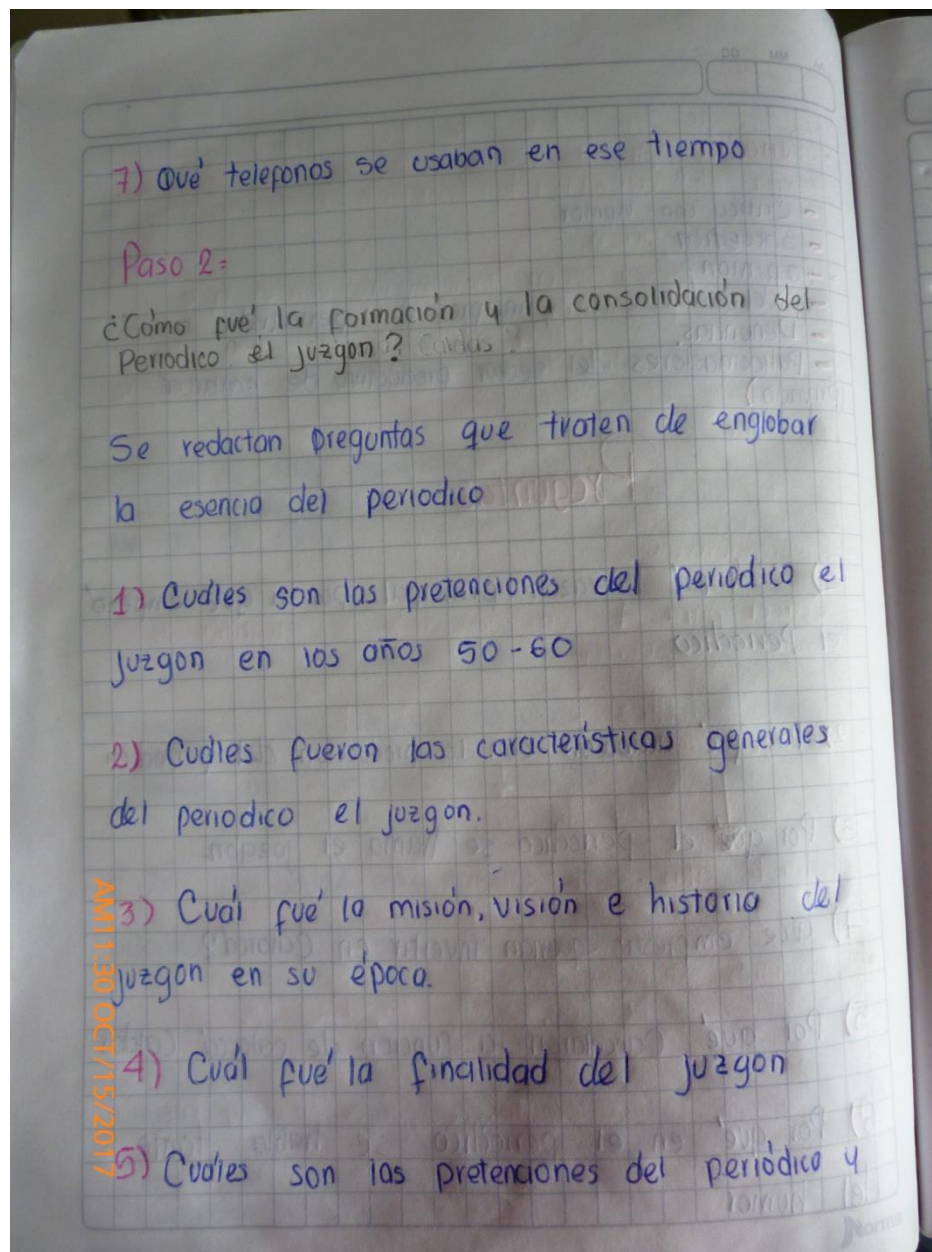 DD MM
7) Qué telefonos se usaban en ese tiempo
Paso 2:
¿Cómo fué la formación y la consolidación del
Periodico el juzgon?
Se redactan preguntas que traten de englobar
la esencia del periodico
1) Cuáles son las pretenciones del periódico el
juzgon en los años 50-60
2) Cuáles fueron las características generales
del periodico el juzgon.
3) Cuál fué la misión, visión e historia del
juzgon en su época.
4) Cuál fué la finalidad del juzgon
5) Cuáles son las pretenciones del periódico y
Norma
AM11:30 OCT/15/2017